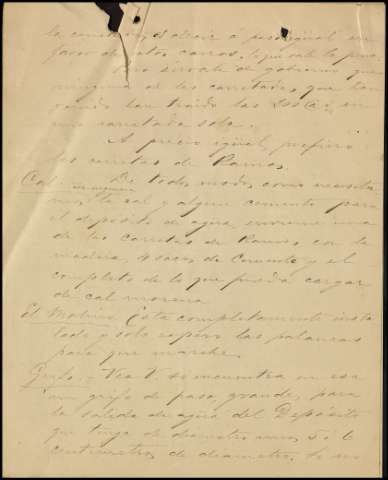 favor de estos carros, lo que vale la pena.
Pero sírvale de gobierno que
ninguna de las carretadas que han
venido han traido las 200 @, en
una carretada sola.
A precio igual, prefiero
las carretas de Ramos.
Cal. De todos modos, como necesita
mos la cal y algun cemento para
el depósito de agua, envieme una
de las carretas de Ramos con la
madera, 4 sacos de Cemento y el
completo de lo que pueda cargar
de cal morena
El Molino Esta completamente insta
lado y solo espero las palancas
para que marche.
Grifo. - Vea V. se encuentra en esa
un grifo de paso grande, para
la salida de agua del Depósito
que tenga de diametro unos 5 ó 6
centimetros de diametro. Si no